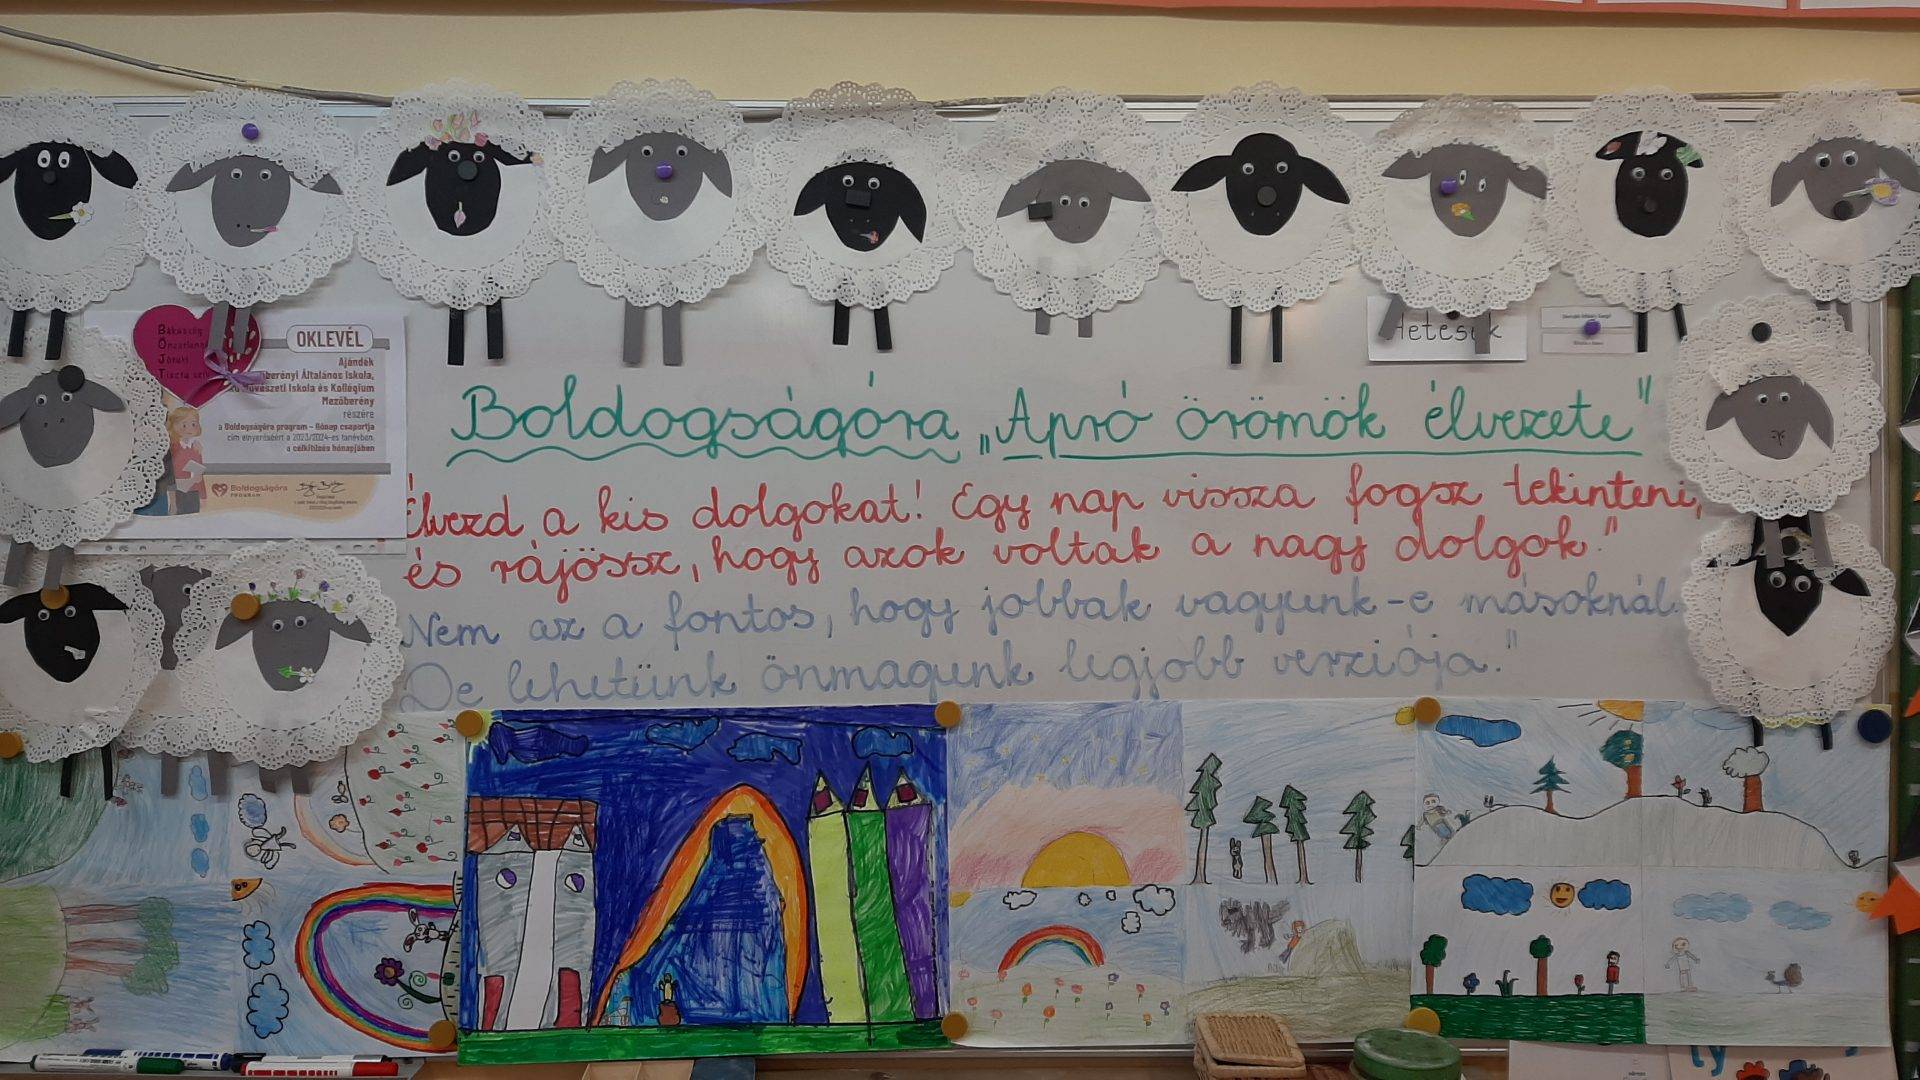 Bákaság
Önzetlens
Jóság
Tiszta szív
OKLEVÉL
Ajándék
berényi Általános Iskola,
űvészeti Iskola és Kollégium
Mezőberény
részére
a Boldogságóra program – Hónap csoportja
cím elnyeréséért a 2023/2024-es tanévben,
a célkitűzés hónapjában
Boldogságóra
PROGRAM
Hetesek
Boldogságóra „Apró örömök élvezete"
Élvezd a kis dolgokat! Egy nap vissza fogsz tekinteni,
és rájössz, hogy azok voltak a nagy dolgok."
Nem az a fontos, hogy jobbak vagyunk-e másoknál.
De lehetünk önmagunk legjobb verziója."
ty